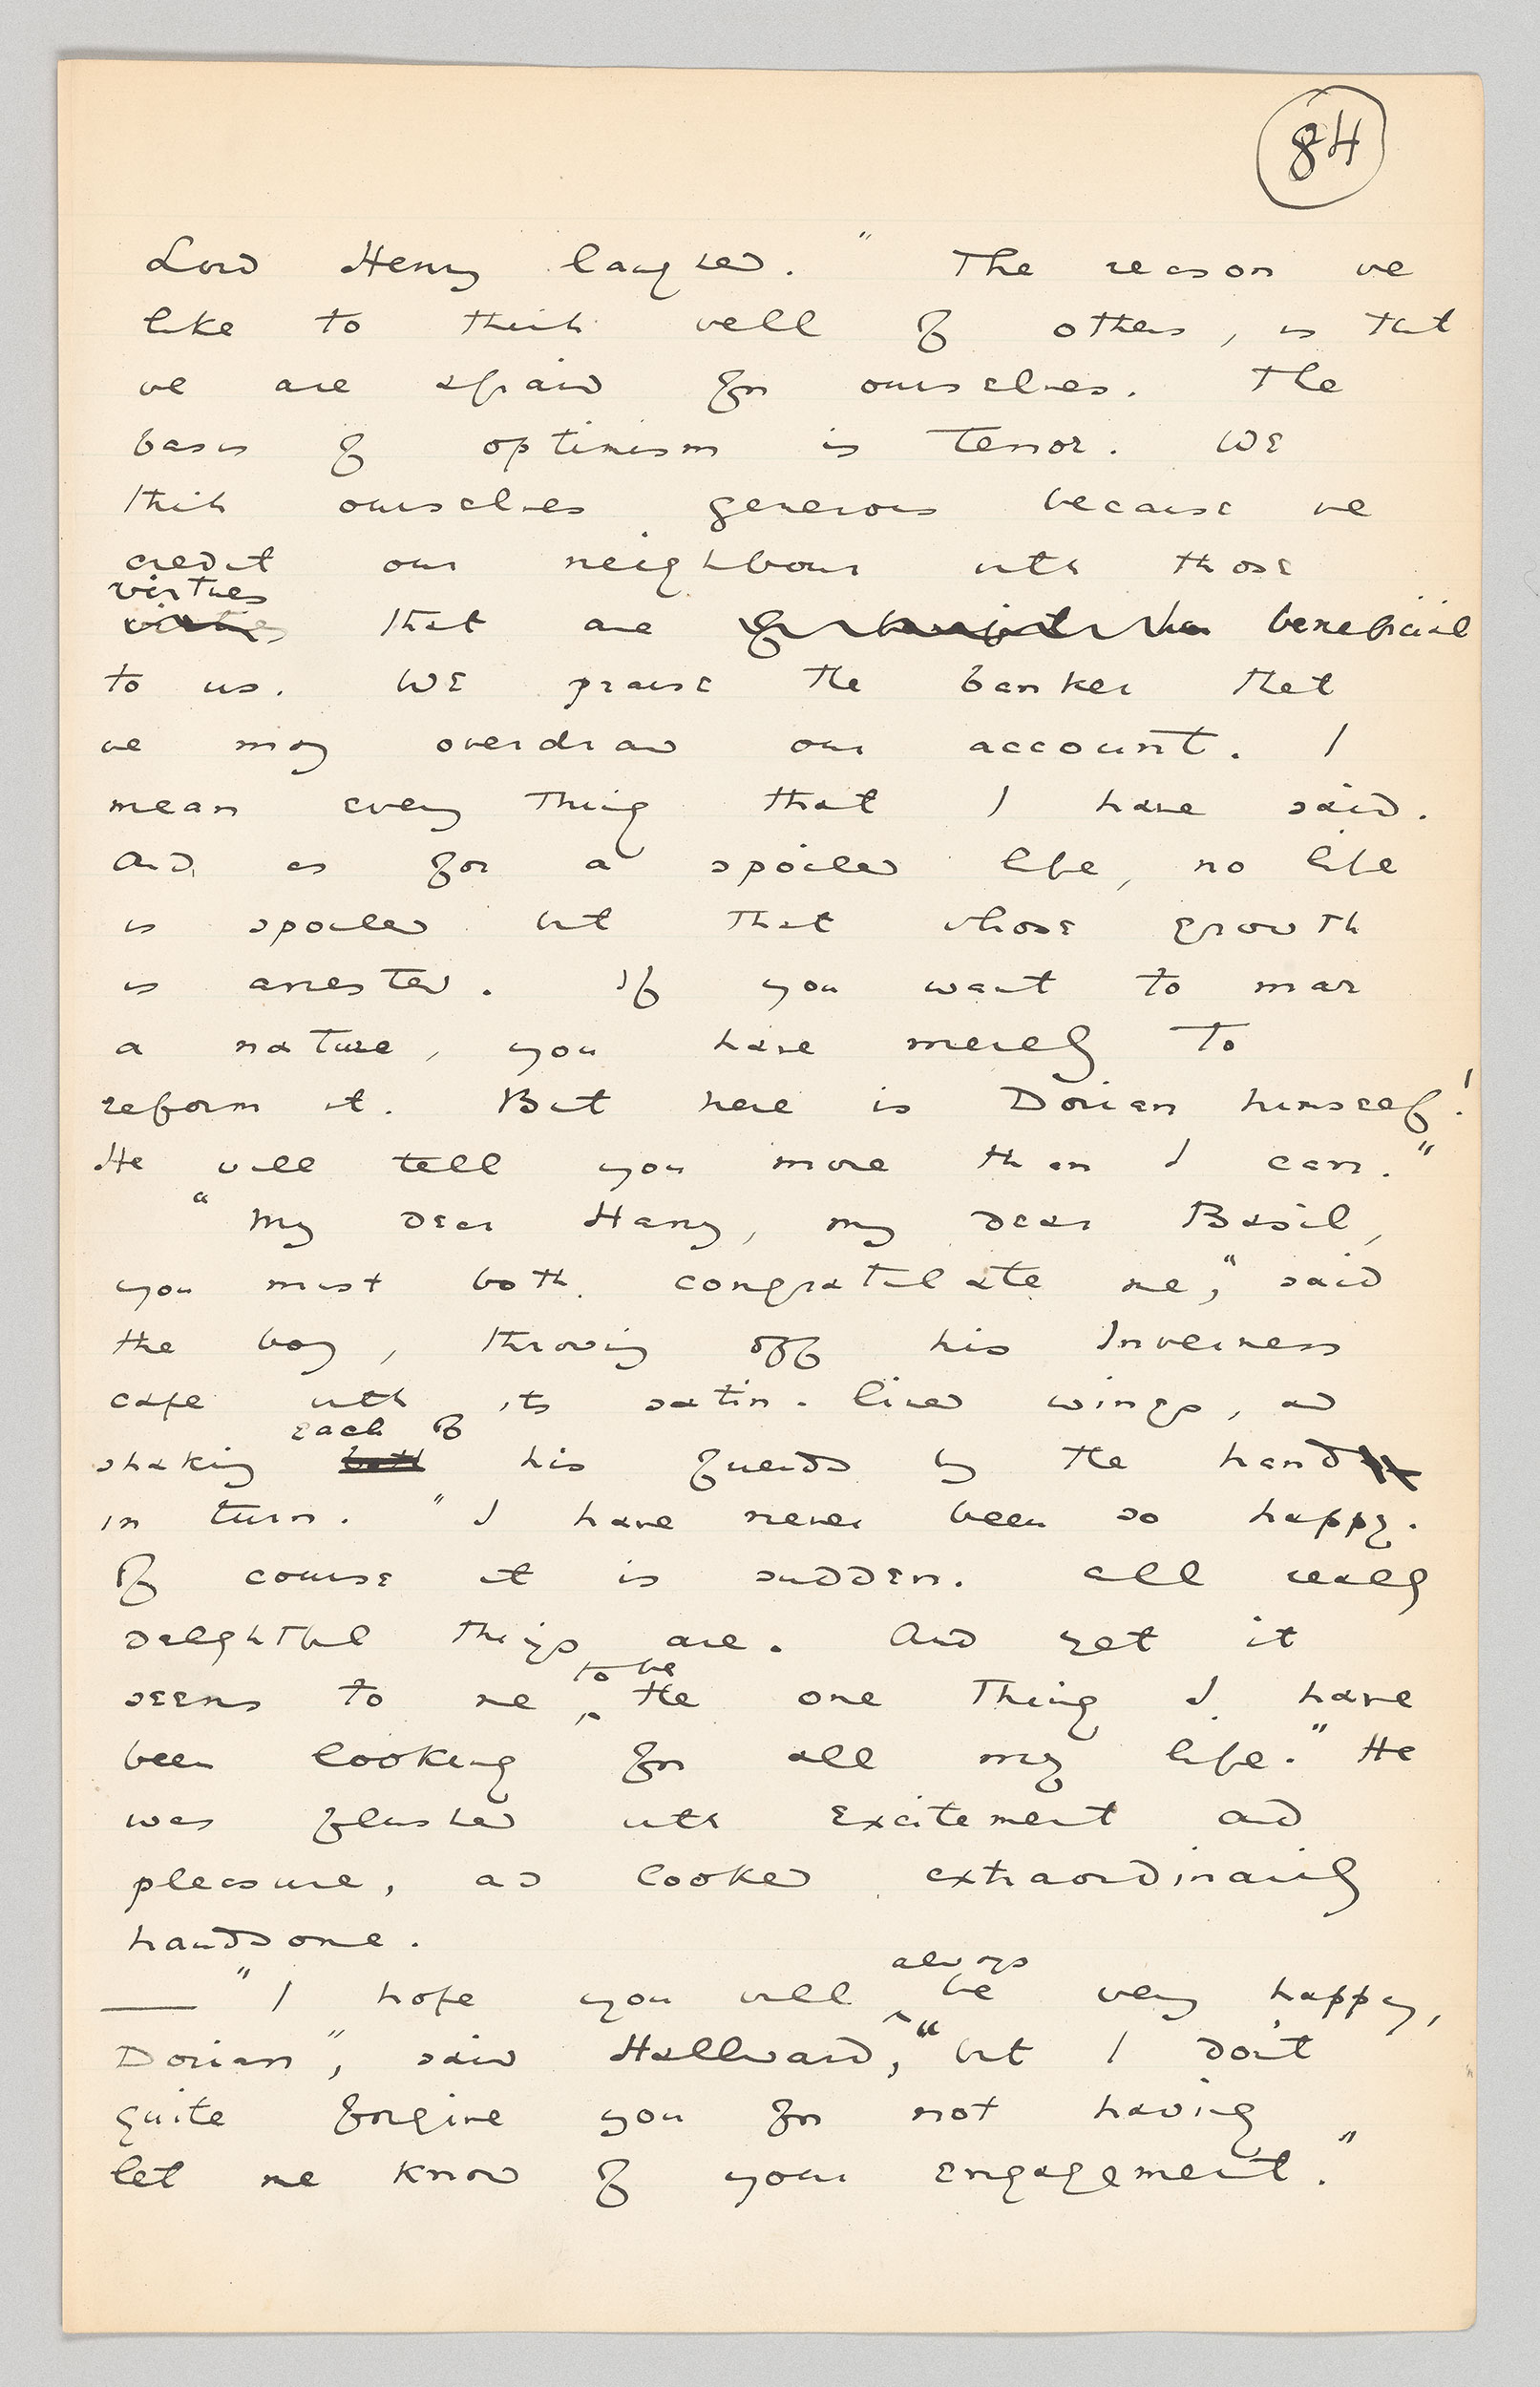 84
Lord Henry laughed. "The reason we
like to think well of others, is that
we are afraid for ourselves. The
basis of optimism is terror. We
think ourselves generous because we
credit our neighbour with those
virtues
virtues that are beneficial
to us. We praise the banker that
we may overdraw our account. I
mean every thing that I have said.
And, as for a spoiled life, no life
is spoiled but that whose growth
is arrested. If you want to mar
a nature, you have merely to
reform it. But here is Dorian himself!
He will tell you more than I can."
"My dear Harry, my dear Basil,
you must both congratulate me," said
the boy, throwing off his Inverness
cape with its satin-lined wings, and
each of
shaking both his friends by the hand
in turn. "I have never been so happy.
Of course it is sudden. All really
delightful things are. And yet it
to be
seems to me ^ the one thing I have
been looking for all my life." He
was flushed with excitement and
pleasure, and looked extraordinarily
handsome.
always
— "I hope you will ^ be very happy,
Dorian", said Hallward, "but I don't
quite forgive you for not having
let me know of your engagement."